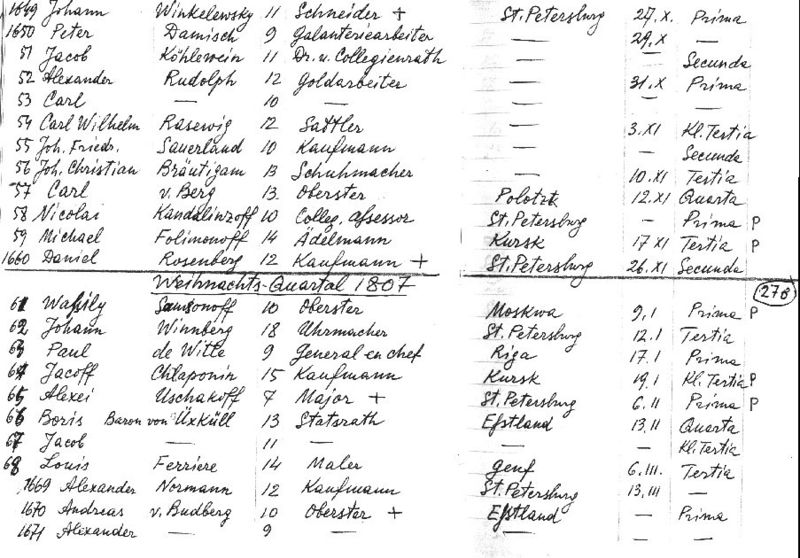 1649 Johann Winkelewsky 11 Schneider + St. Petersburg 27.X. Prima
1650 Peter Damisch 9 Galanteriearbeiter — 29.X —
51 Jacob Köhlewein 11 Dr. u. Collegienrath — — Secunda
52 Alexander Rudolph 12 Goldarbeiter — 31.X Prima
53 Carl — 10 — — — —
54 Carl Wilhelm Rasewig 12 Sattler — 3.XI Kl. Tertia
55 Joh. Friedr. Sauerland 10 Kaufmann — — Secunda
56 Joh. Christian Bräutigam 13 Schuhmacher — 10.XI Tertia
57 Carl v. Berg 13 Oberster Polotzk 12.XI Quarta
58 Nicolai Kandalinzoff 10 Colleg. Assessor St. Petersburg — Prima P
59 Michael Folimonoff 14 Ädelmann Kursk 17 XI Tertia P
1660 Daniel Rosenberg 12 Kaufmann + St. Petersburg 26.XI Secunda
Weihnachts-Quartal 1807 (278)
61 Wassily Samsonoff 10 Oberster Moskwa 9.1 Prima P
62 Johann Winnberg 18 Uhrmacher St. Petersburg 12.1 Tertia
63 Paul de Witte 9 General en chef Riga 17.1 Prima
64 Jacoff Chlaponin 15 Kaufmann Kursk 19.1 Kl. Tertia P
65 Alexei Uschakoff 7 Major + St. Petersburg 6.II Prima P
66 Boris Baron von Üxküll 13 Statsrath Esstland 13.II Quarta
67 Jacob — 11 — — — Kl. Tertia
68 Louis Ferriere 14 Maler Genf 6.III. Tertia
1669 Alexander Normann 12 Kaufmann St. Petersburg 13.III —
1670 Andreas v. Budberg 10 Oberster + Esstland — Prima
1671 Alexander — 9 — — — —